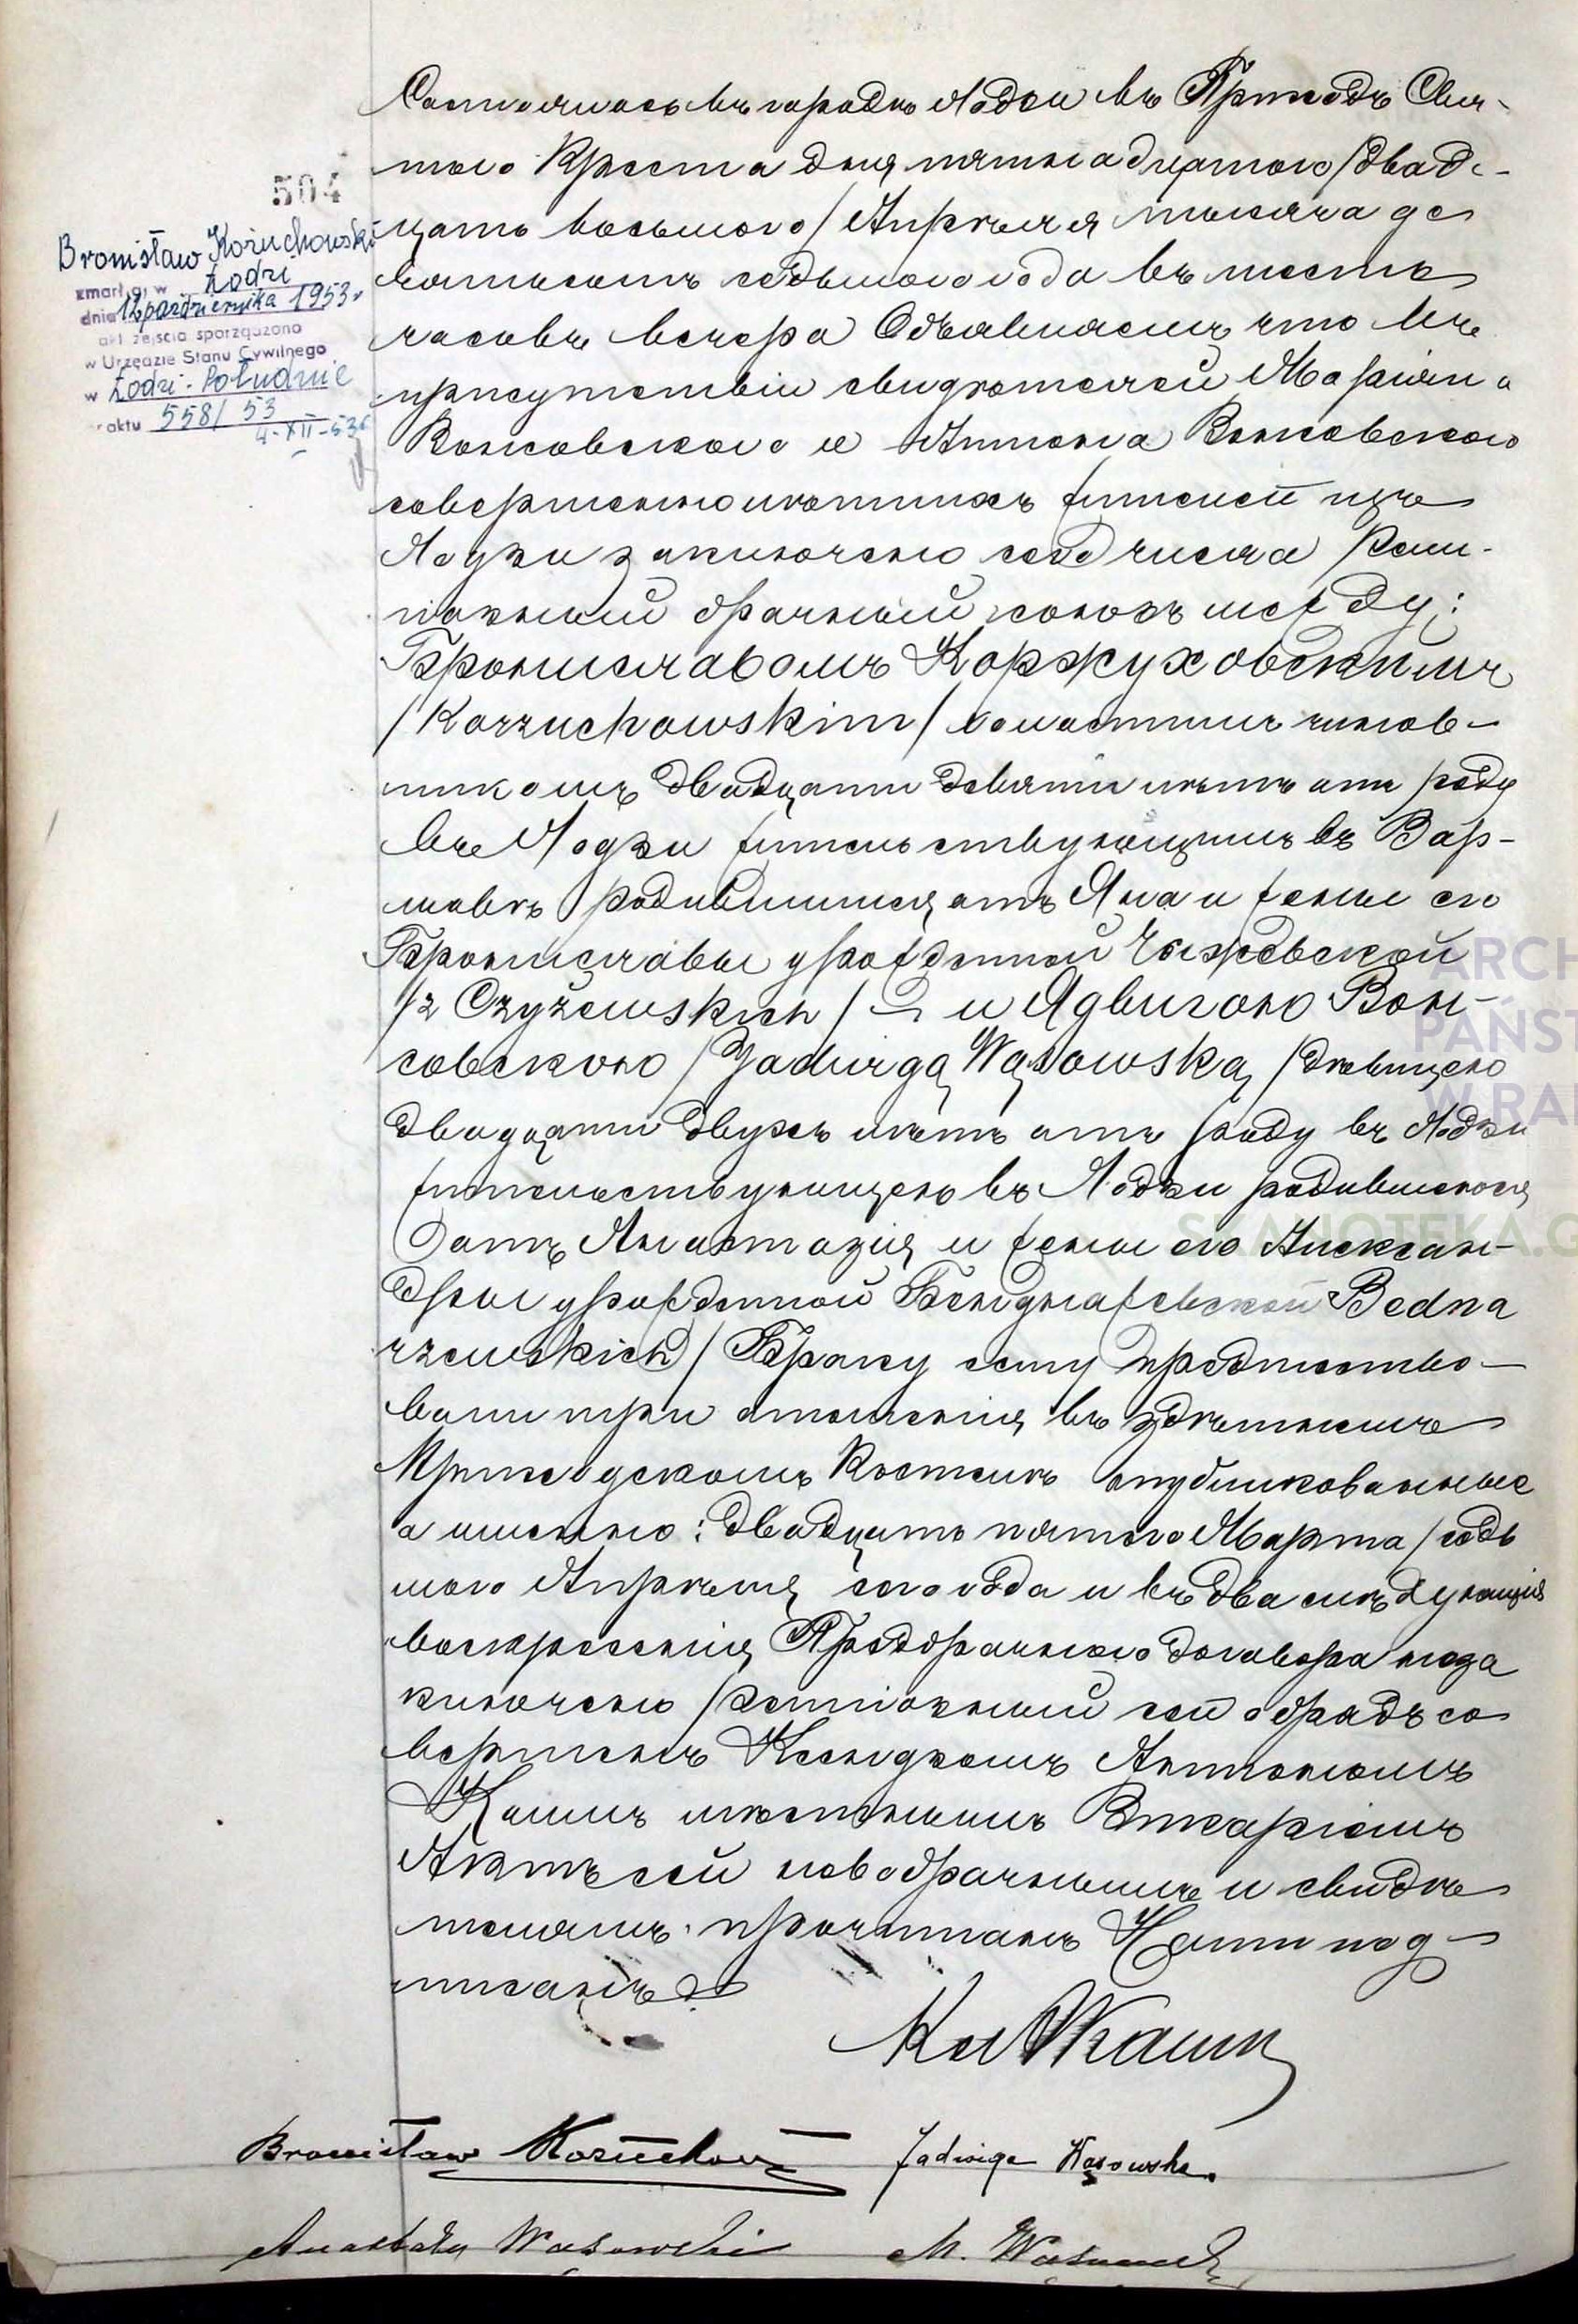 504
Bronisław Kożuchowski
zmarł(a) w Łodzi
dnia 12 października 1953 r
akt zejścia sporządzono
w Urzędzie Stanu Cywilnego
w Łodzi-Południe
Nr aktu 558/53
4-XII-53
Состоялось въ городѣ Лодзи въ Приходѣ Свя-
таго Креста дня пятнадцатого /двад-
цать восьмого/ Апрѣля тысяча де
вятьсотъ седьмого года въ шесть
часовъ вечера Объявляемъ что въ
присутствіи свидѣтелей Маріана
Вонсовского и Антона Вонсовского
совершеннолѣтнихъ жителей изъ
Лодзи заключено сего числа Рели-
гіозный брачный союзъ между:
Брониславомъ Коржуховскимъ
/Korzuchowskim/ холостымъ чинов-
никомъ двадцати девяти лѣтъ отъ роду
въ Лодзи жительствующимъ въ Вар-
шавѣ родившимся отъ Яна и жены его
Брониславы урожденной Чижевской
/z Czyżewskich/ и Ядвигою Вон-
совскою /Jadwigą Wąsowską/ дѣвицею
двадцати двухъ лѣтъ отъ роду въ Лодзи
жительствующею въ Лодзи родившеюся
отъ Анастазія и жены его Алексан-
дры урожденной Bedna
rzewskich/ Браку сему предшество-
вали три оглашенія въ здѣшнемъ
Приходскомъ Костелѣ опубликованные
а именно: двадцать пятого Марта /седь
мого Апрѣля сего года и въ два слѣдующія
воскресенія Предбрачного договора не за
ключено религіозный сей обрядъ со
вершенъ Ксендзомъ Антоніомъ
Качмъ мѣстнымъ Викаріемъ
Актъ сей новобрачнымъ и свидѣ
телямъ прочитанъ Нами под-
писанъ
Bronisław Kożuchowski Jadwiga Wąsowska
Anastazy Wąsowski M. Wąsowski
ARCH
PAŃST
W RA
SKANOTEKA.G